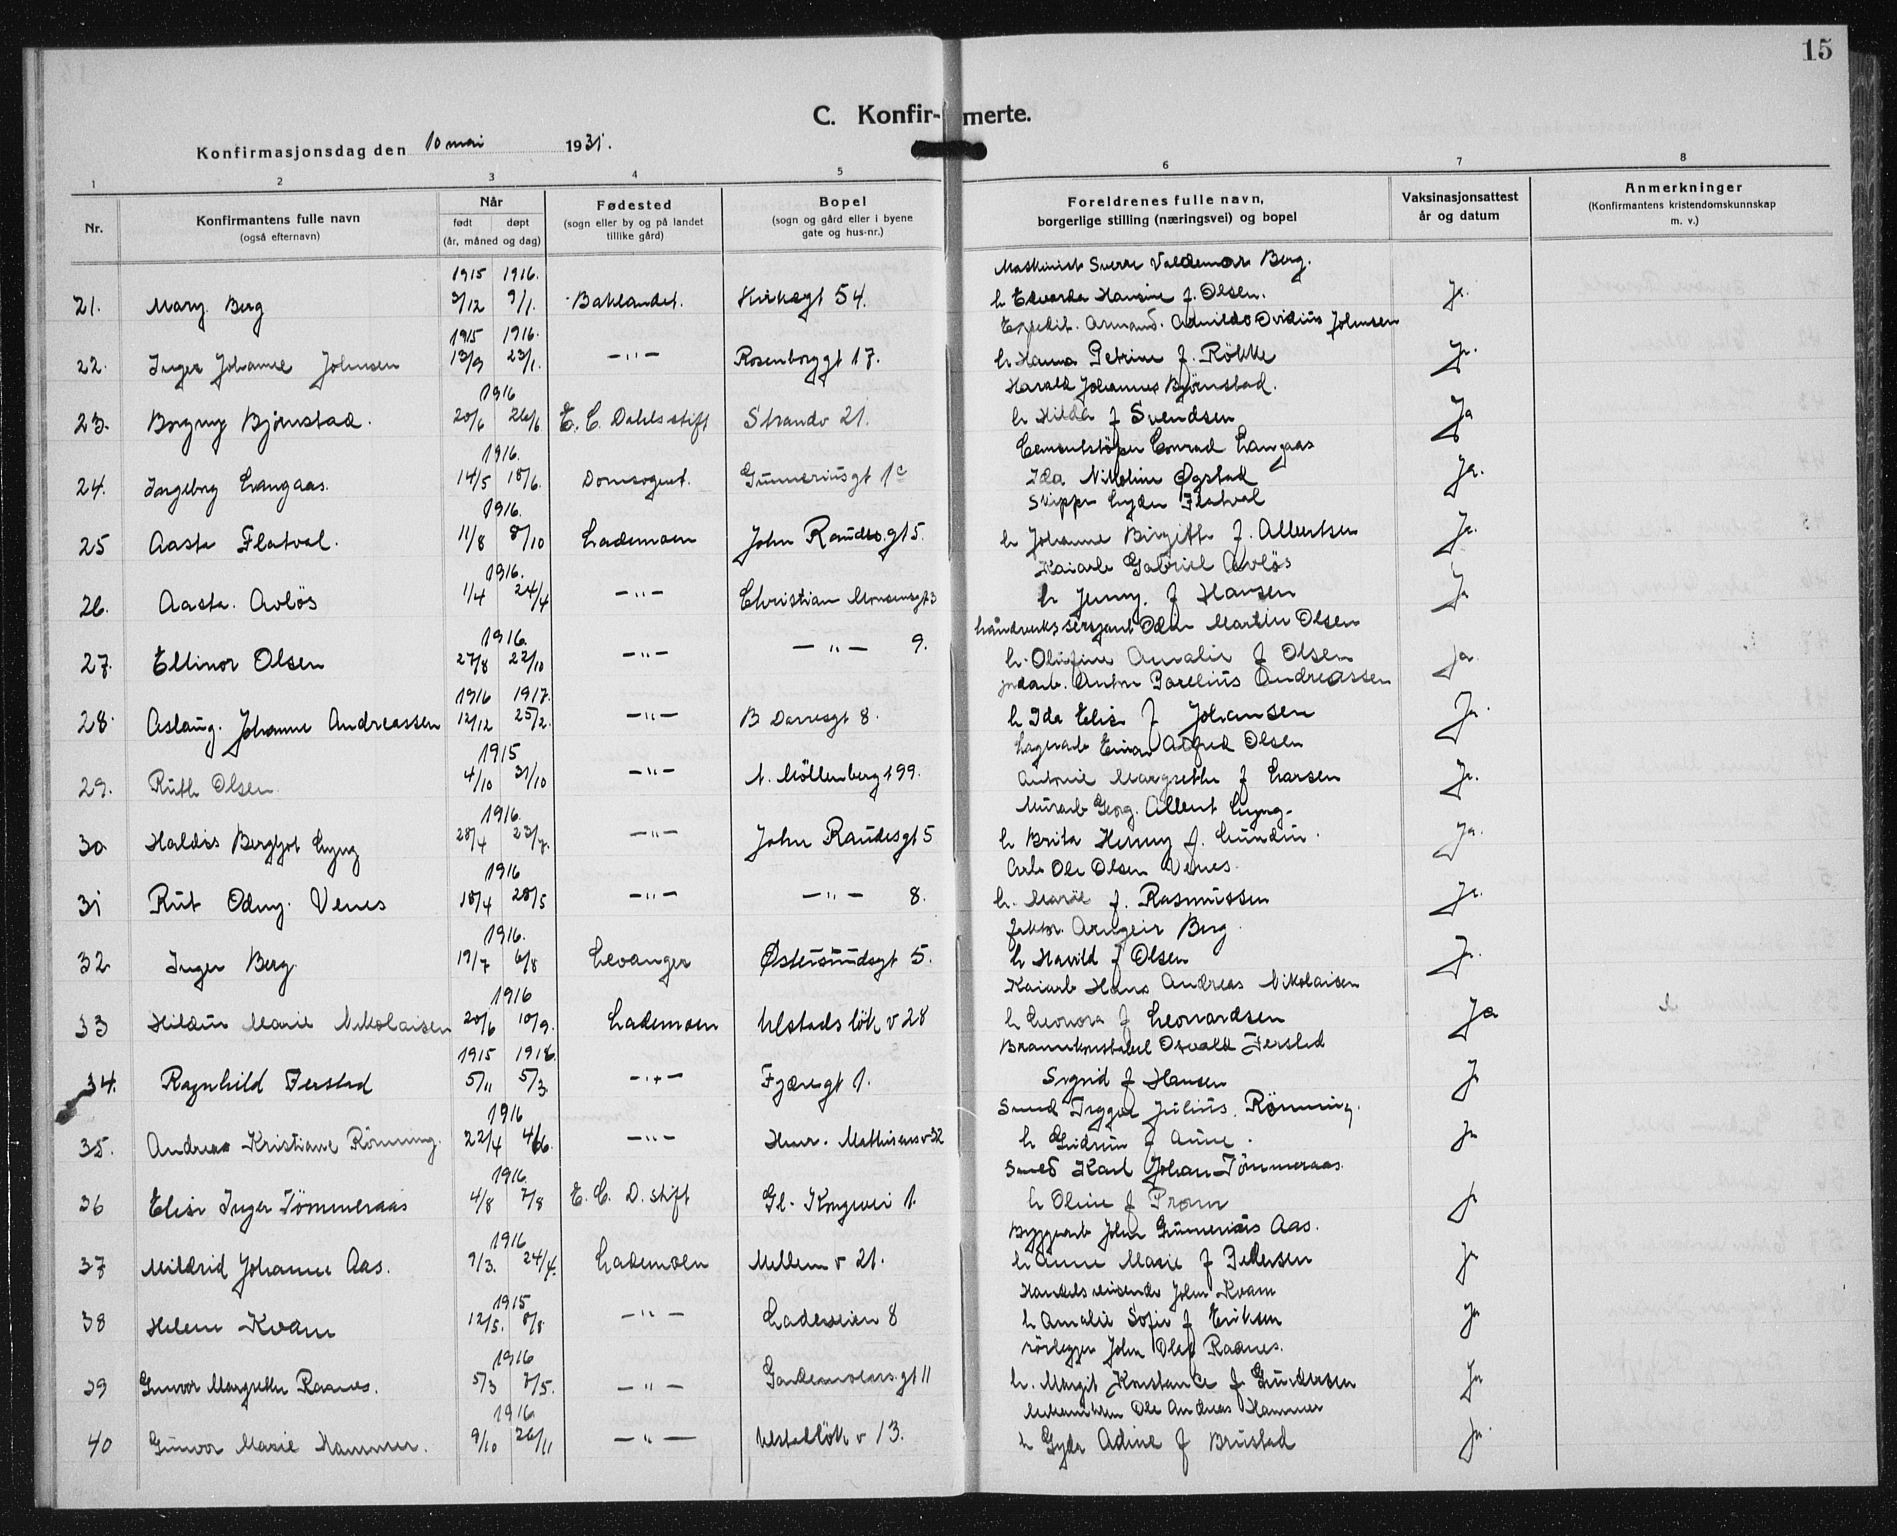 15
C. Konfirmerte.
Konfirmasjonsdag den 10 mai 1931.
1 2 3 4 5 6 7 8
Nr. Konfirmantens fulle navn (også efternavn) Når født døpt (år, måned og dag) Fødested (sogn eller by og på landet tillike gård) Bopel (sogn og gård eller i byene gate og hus-nr.) Foreldrenes fulle navn, borgerlige stilling (næringsvei) og bopel Vaksinasjonsattest år og datum Anmerkninger (Konfirmantens kristendomskunnskap m. v.)
1915 1916. Maskinist Sverre Valdemar Berg.
21. Mary Berg 3/12 9/1. Baklandet. Kirkegt 54. h Edvarda Hansine f. Olsen. Ja.
1915 1916. Expedit. Armand. Arnildo Ovidius Johnsen
22. Inger Johanne Johnsen 13/9 23/1. -"- Rosenborggt 17. h Hanna Petrine f. Rökke Ja.
1916 Harald Johannes Bjørnstad.
23. Borgny Bjørnstad. 20/6 26/6 E. C. Dahls stift Strandv 21. h Hilda f Svendsen Ja
1916. Cementstöper Conrad Langaas
24. Ingeborg Langaas. 14/5 18/6. Domsognet. Gunneriusgt 1c Ida Nikoline Øgstad Ja.
1916. Skipper Lyder Flatval
25 Aasta Flatval. 11/8 8/10 Lademoen John Raudes.gt 5. h Johanne Birgitte f. Albertsen Ja.
1916. Kaiarb Gabriel Avlös
26. Aasta. Avlös 1/4 24/4 -"- Christian Monsensgt 3 h Jenny. f Hansen Ja
1916. håndverkssersjant Odin Martin Olsen
27. Ellinor Olsen 27/8 22/10 -"- -"- 9. h. Olufine Amalie f Olsen Ja.
1916 1917. jndarb. Anton Parelius Andreassen
28. Aslaug. Johanne Andreassen 12/12 25/2. -"- B Darresgt 8. h Ida Elise f Johansen Ja.
1915 Lagerarb Einar Alfred Olsen
29. Ruth Olsen. 4/10 31/10 -"- N. Möllenberggt 99. Antonie Margrethe f Larsen Ja.
1916. Murarb Georg. Albert Lyng.
30 Haldis Bergljot Lyng 28/4 23/7. -"- John Raudesgt 5 h Brita Henny f. Lundin. Ja.
1916 Arb Ole Olsen Venes.
31 Rut Odny. Venes 18/4 28/5 -"- -"- 8. h. Marie f. Rasmussen Ja.
1916. faktor. Arngeir Berg
32 Inger Berg 19/7 6/8 Levanger Østersundsgt 5. h Havild f Olsen Ja.
1916 Kaiarb Hans Andreas Nikolaisen
33 Hildur Marie Nikolaisen 20/6 10/9. Lademoen Ulstadsløk v 28 h Leonora f Leonardsen Ja
1915 1916. Brannkonstabel Osvald Ferstad
34. Ragnhild Ferstad 5/11 5/3 -"- Fjæregt 1. Sigrid f Hansen Ja
1916 Smed Trygve Julius. Rönning.
35. Andrea Kristiane Rönning. 22/4 4/6. -"- Henr. Mathisensv 32 h Gudrun f Aune. Ja
1916. Smed Karl Johan Tömmeraas.
36 Elise Inger Tömmeraas 4/8 7/8 E. C. D. stift Gl. Kongevei 1. h Oline f Pram Ja
1916 Byggearb John Gunnerius Aas.
37 Mildrid Johanne Aas. 9/3. 24/4. Lademoen Mellemv 21. h Anne Marie f Pedersen Ja
1915 Handelsreisende John Kvam
38 Helene Kvam 12/5. 8/8 -"- Ladeveien 8 h Amalie Sofie f Eriksen Ja
1916 rörlegger John Olaf Raanes.
39 Gunvor Margrethe Raanes. 5/3 7/5. -"- Gardemoensgt 11 h. Margit Konstance f Gundersen Ja
1916 Mekaniker Ole Andreas Hammer
40 Gunvor Marie Hammer. 9/10 26/11 -"- Ulstadløk v 13. h Gyda Adine f Brustad Ja.